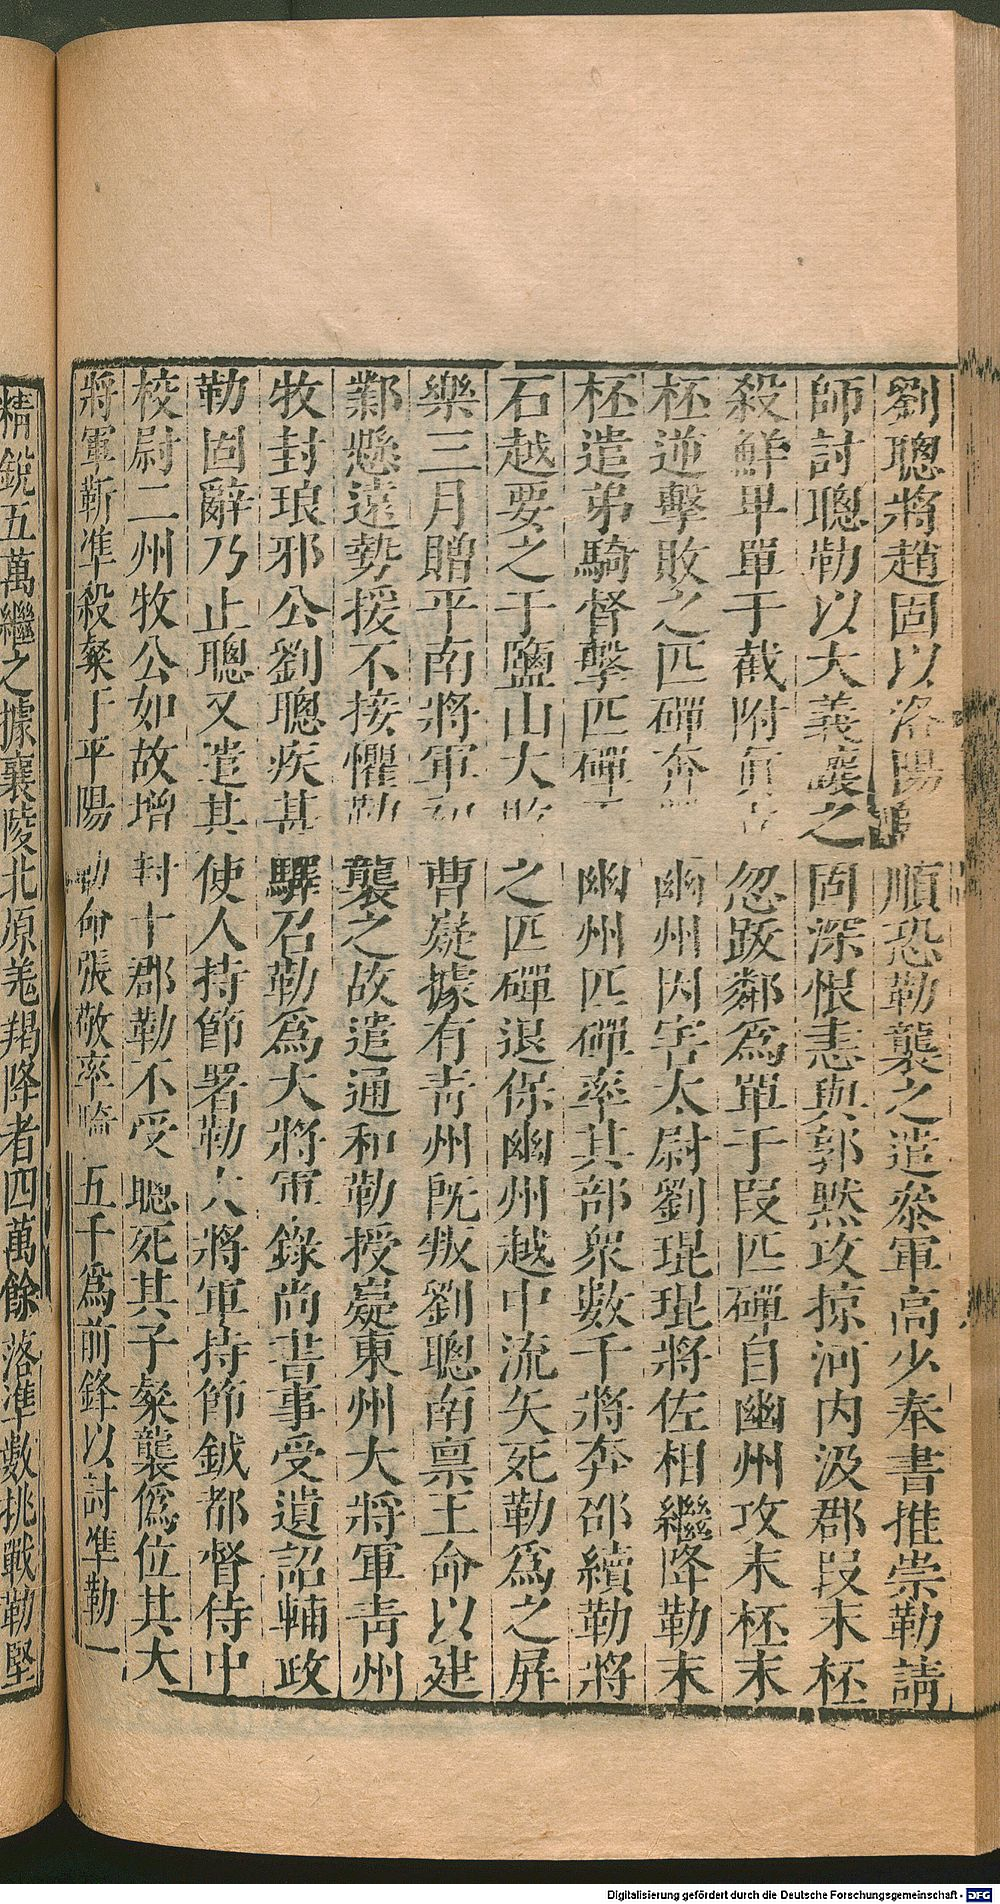 劉聰將趙固以洛陽歸順恐勒襲之遣參軍高少奉書推崇勒請
師討聰勒以大義讓之固深恨恚與郭黙攻掠河内汲郡段末柸
殺鮮卑單于截附眞立忽跋鄰爲單于段匹磾自幽州攻末柸末
柸逆擊敗之匹磾奔幽州因害太尉劉琨琨將佐相繼降勒末
柸遣弟騎督擊匹磾于幽州匹磾率其部衆數千將奔邵續勒將
石越要之于鹽山大敗之匹磾退保幽州越中流矢死勒爲之屏
樂三月贈平南將軍初曹嶷據有青州既叛劉聰南禀王命以建
鄴懸遠勢援不接懼勒襲之故遣通和勒授嶷東州大將軍青州
牧封琅邪公劉聰疾甚驛召勒爲大將軍錄尚書事受遺詔輔政
勒固辭乃止聰又遣其使人持節署勒大將軍持節鉞都督侍中
校尉二州牧公如故增封十郡勒不受聰死其子粲襲僞位其大
將軍靳準殺粲于平陽勒命張敬率騎五千爲前鋒以討準勒
精銳五萬繼之據襄陵北原羌羯降者四萬餘落準數挑戰勒堅
Digitalisierung gefördert durch die Deutsche Forschungsgemeinschaft - DFG